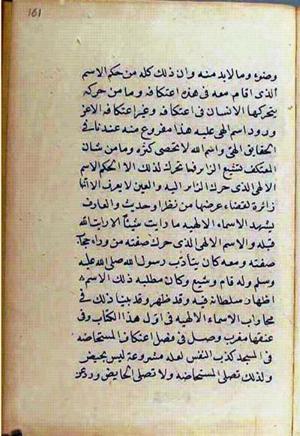 161
وضوء وما لابد منه وان ذلك كله من حكم الاسم
الذى اقام معه فى هذه اعتكافه وما من حركة
يتحركها الانسان فى اعتكافه وغير اعتكافه الا عن
ورود اسم الهى عليه هذا مفروغ منه عندنا فى
الحقايق الهى واسم الله لا تحصى كثرة وما من شان
المعتكف تشيع الزار فما تحرك لذلك الا لحكم الاسم
الالهى الذى حرك الزار اليه والعين لا يعرف الا انها
زائرة لقضاء غرضها من نظر او حديث والعارف
يشهد الاسماء الالهية ما رايت شيئا الا رايت الله
قبله والاسم الالهى الذى حرك صفته من وراء حجاب
صفته ومعه كان يتادب رسول الله صلى الله عليه
وسلم وله قام وشيع وكان مطلبه ذلك الاسم
اظهار سلطانه فيه وقد ظهر وقد بينا ذلك فى
محاورات الاسماء الالهية فى اول هذا الكتاب وفى
عنقها مغرب وصل فى فصل اعتكاف المستحاضة
فى المسجد كذب النفس لعلة مشروعة ليس بحيض
ولذلك تصلى المستحاضة ولا تصلى الحايض